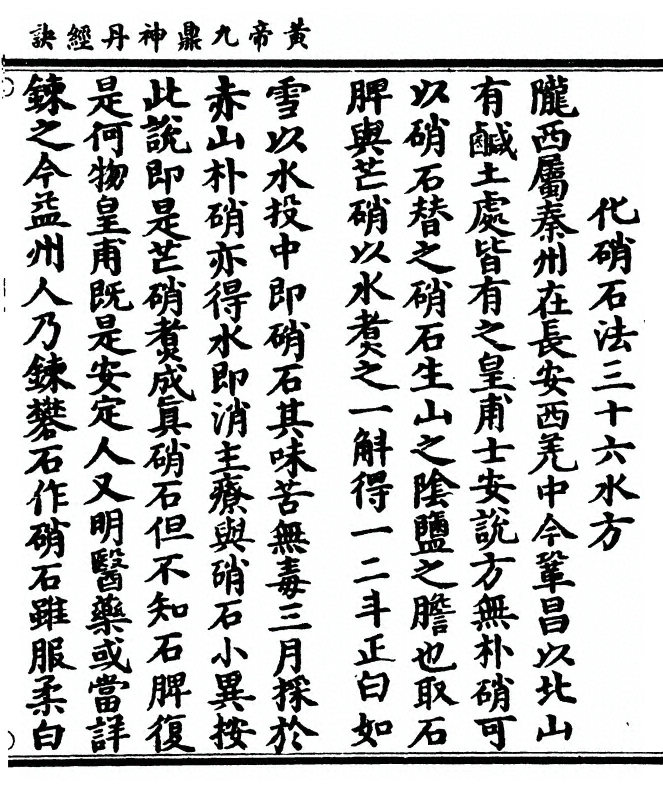 黃帝九鼎神丹經訣
化硝石法三十六水方
隴西屬秦州在長安西羌中今鞏昌以北山
有鹹土處皆有之皇甫士安說方無朴硝可
以硝石替之硝石生山之陰鹽之膽也取石
脾與芒硝以水煑之一斛得一二斗正白如
雪以水投中即硝石其味苦無毒三月採於
赤山朴硝亦得水即消主療與硝石小異按
此說即是芒硝煑成眞硝石但不知石脾復
是何物皇甫既是安定人又明醫藥或當詳
鍊之今益州人乃鍊礬石作硝石雖服柔白